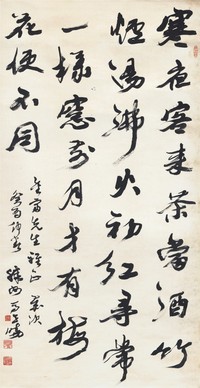 寒夜客来茶當酒竹
爐湯沸火初紅尋常
一樣窓前月才有梅
花便不同
先生雅正